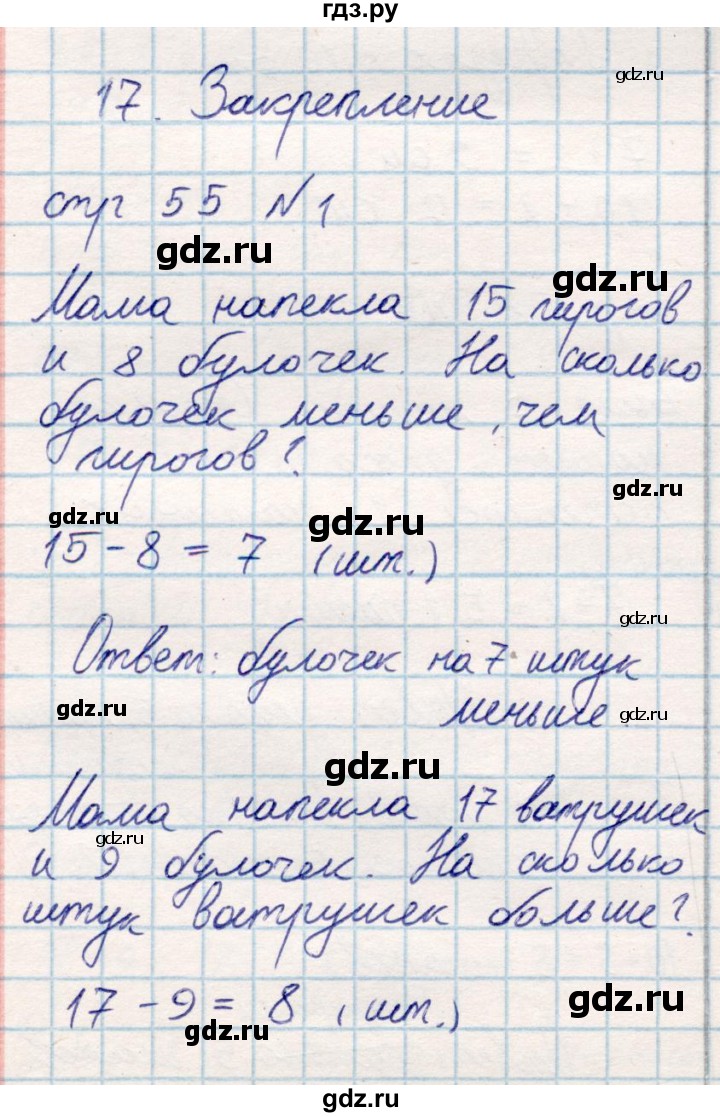 гдз.ру
gdz.ru
17. Закрепление
стр 55 №1
gdz.ru
gdz.ru
Мама напекла 15 пирогов
и 8 булочек. На сколько
булочек меньше, чем
пирогов?
gdz.ru
gdz.ru
gdz.ru
15 - 8 = 7 (шт.)
gdz.ru
Ответ: булочек на 7 штук
меньше
gdz.ru
gdz.ru
gdz.ru
Мама напекла 17 ватрушек
gdz.ru
и 9 булочек. На сколько
штук ватрушек больше?
17 - 9 = 8 (шт.)
gdz.ru
gdz.ru
gdz.ru